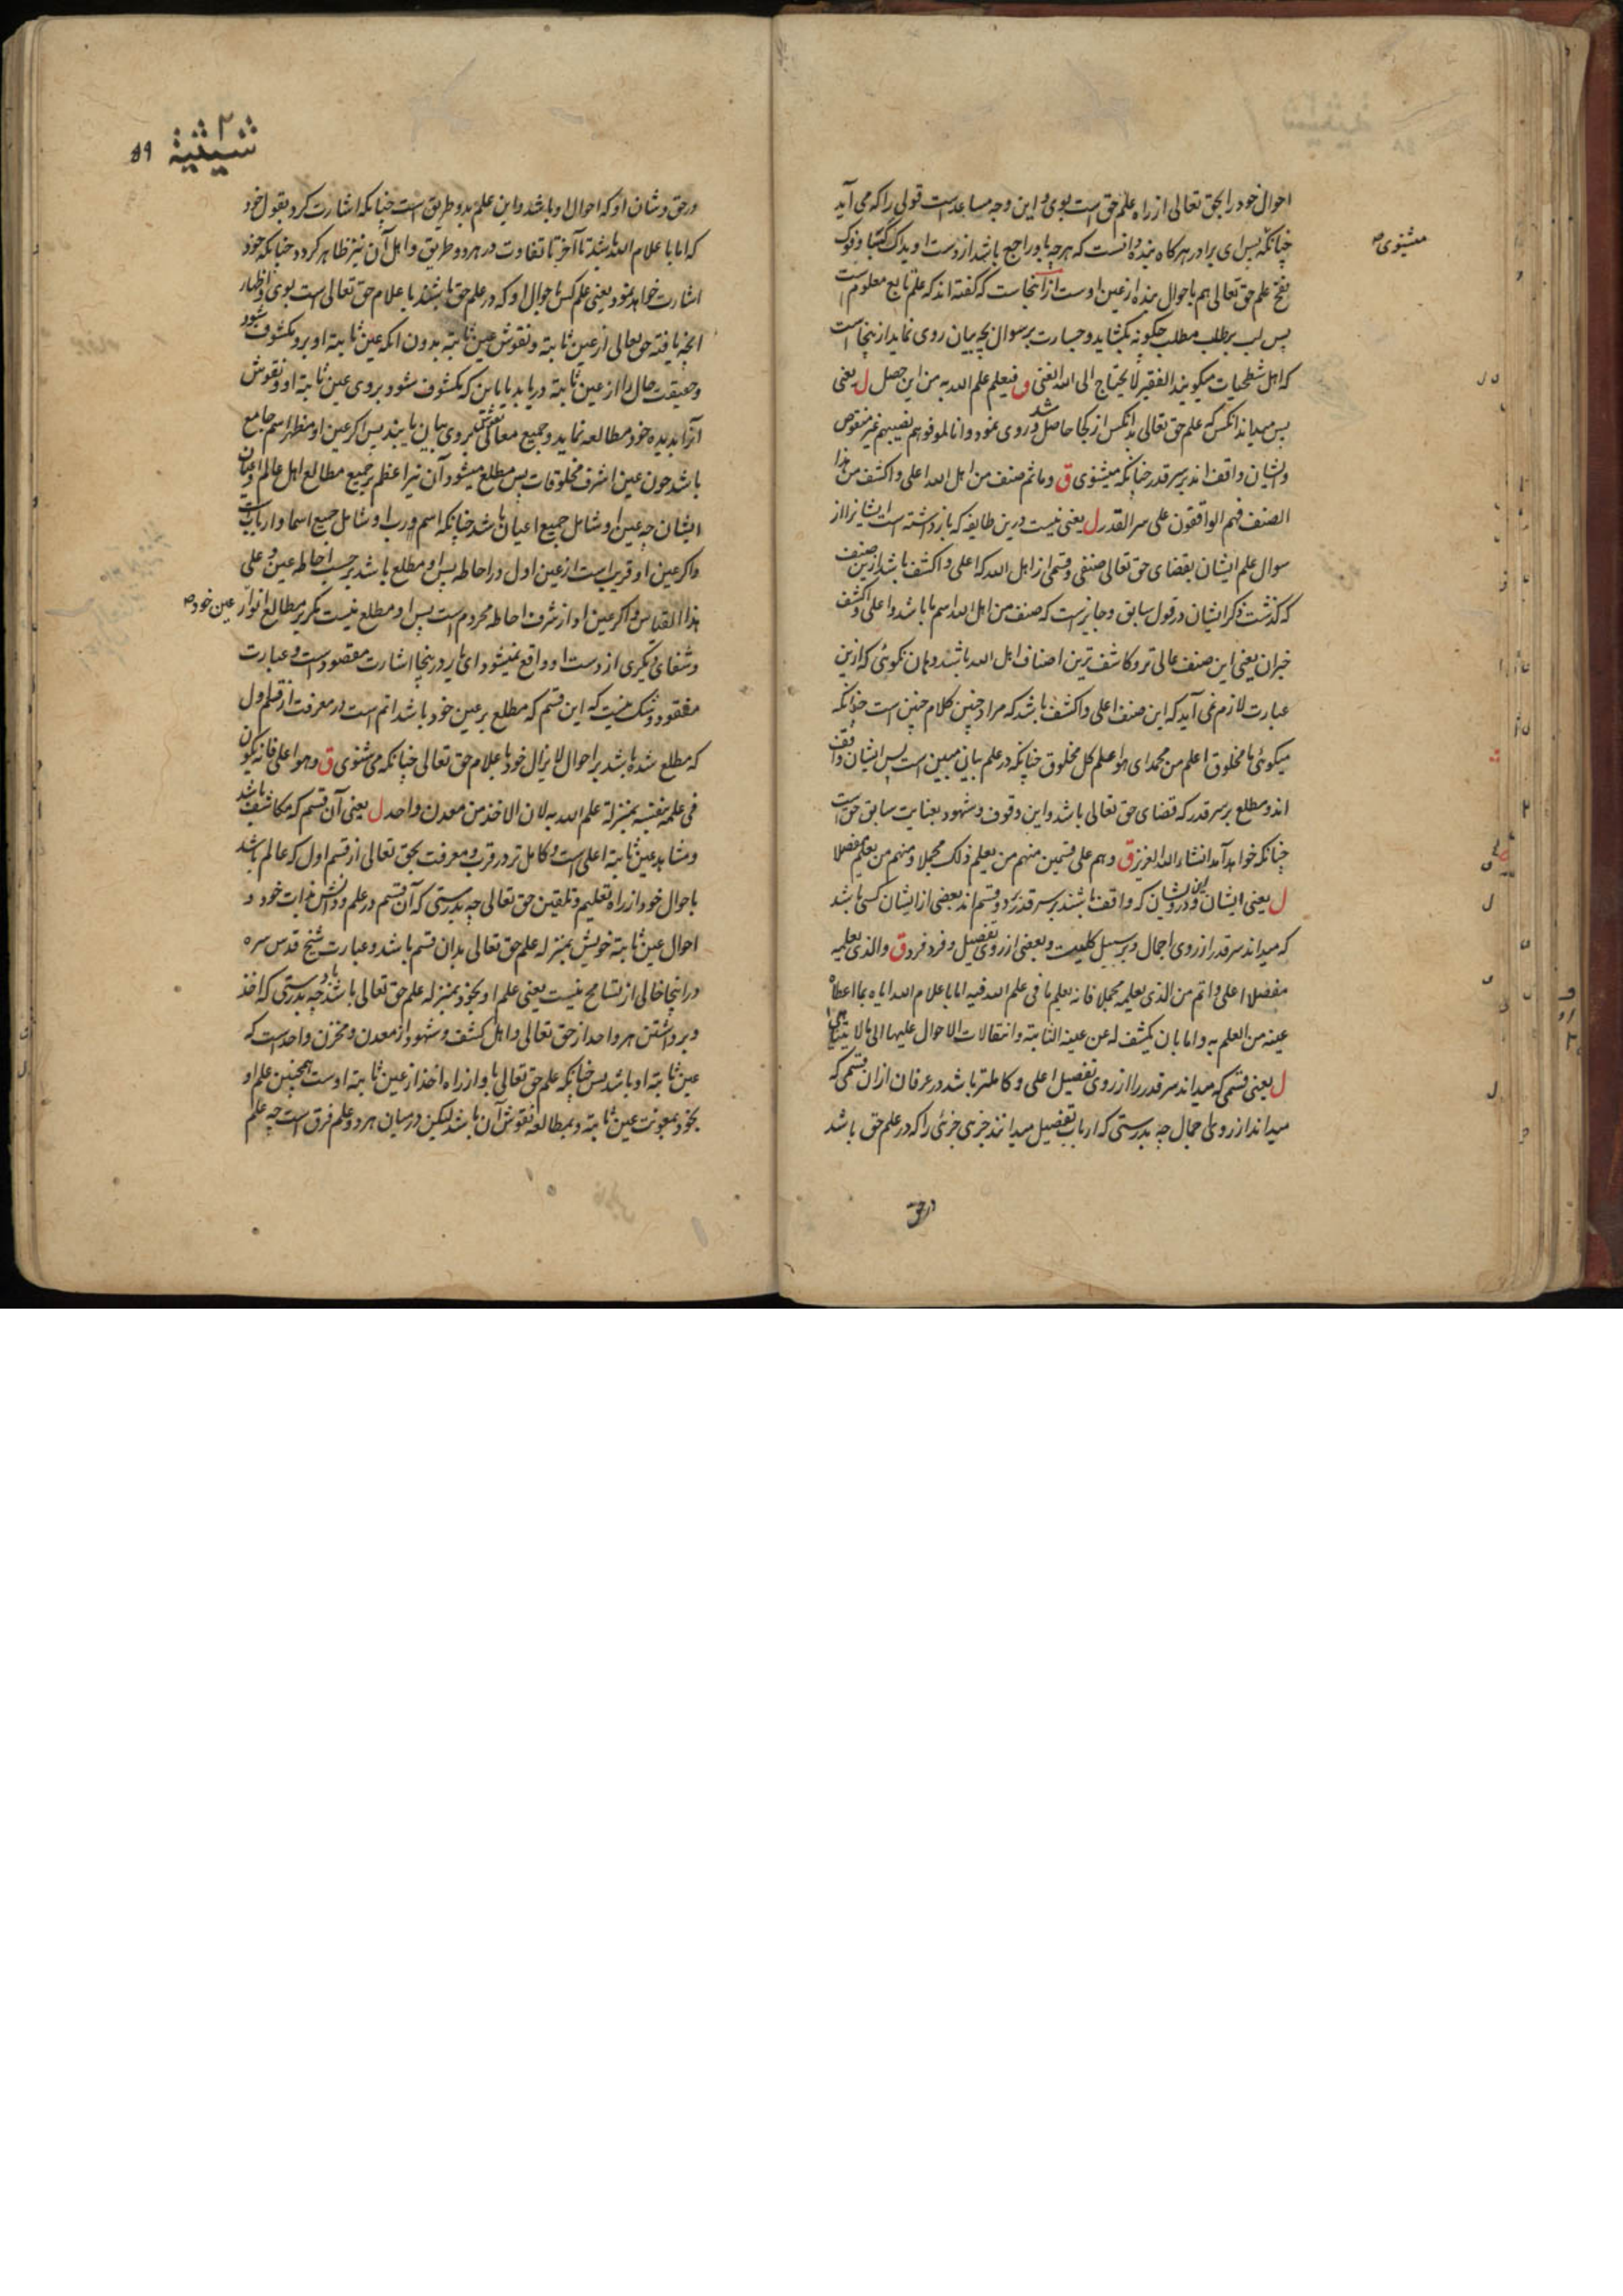 احوال خود را بحق تعالی از راه علم حق است بوی و این وجه مساعد است قولی را که می آید
چنانکه پس ای برادر هرکاه بنده دانست که هرچه باو راجع باشد از دست او یداک کسبتا و فوک
میشنوی صح
نفخ علم حق تعالی هم باحوال بنده از عین اوست از آنجاست که کفته اند که علم تابع معلوم است
پس لب بر طلب مطلب چکونه بکشاید و جسارت بر سوال بچه بیان روی نماید از ینجا است
که اهل شطحیات میکویند الفقیر لا یحتاج الی الله الغنی ق فیعلم علم الله به من این حصل ل یعنی
پس میداند انکس که علم حق تعالی بدانکس از کجا حاصل شد و روی نمود و انا لموفوهم نصیبهم غیر منقوص
و ایشان واقف اند بر سر قدر چنانکه میشنوی ق و ما ثم صنف من اهل الله اعلی و اکشف من هذا
الصنف فهم الواقفون علی سر القدر ل یعنی نیست درین طایفه که باز داشته است ایشانرا از
سوال علم ایشان بقضای حق تعالی صنفی و قسمی از اهل الله که اعلی و اکشف باشد ازین صنف
که کذشت ذکر ایشان در قول سابق و جایز است که صنف من اهل الله اسم ما باشد و اعلی و اکشف
خبر ان یعنی این صنف عالی تر و کاشف ترین اصناف اهل الله باشند و هان نکوئی که ازین
عبارت لازم نمی آید که این صنف اعلی و اکشف باشد که مراد چنین کلام چنین است چنانکه
میکوئی ما مخلوق اعلم من محمد ای هو اعلم کل مخلوق چنانکه در علم بیانی مبین است پس ایشان واقف
اند و مطلع بر سر قدر که قضای حق تعالی باشد و این وقوف و شهود بعنایت سابق حق است
چنانکه خواهد آمد انشاء الله العزیز ق و هم علی قسمین منهم من یعلم ذلک مجملا و منهم من یعلمه مفصلا
ل یعنی ایشان و درویشان که واقف باشند بر سر قدر دو قسم اند بعضی از ایشان کسی باشد
که میداند سر قدر از روی اجمال و بر سبیل کلیت و بعضی از روی تفصیل و فرد فرد ق والذی یعلمه
مفصلا اعلی و اتم من الذی یعلمه مجملا فانه یعلم ما فی علم الله فیه اما باعلام الله ایاه بما اعطاه
عینه من العلم به و اما بان یکشف له عن عینه الثابتة و انتقالات الاحوال علیها الی ما لا یتناهی
ل یعنی قسمی که میداند سر قدر را از روی تفصیل اعلی و کاملتر باشد در عرفان از ان قسمی که
میداند از روی اجمال چه بدرستی که ارباب تفصیل میدانند جزئی جزئی را که در علم حق باشد
در حق
۵۹
در حق و شان او که احوال او باشد و این علم بدو طریق است چنانکه اشارت کرد بقول خود
که اما باعلام الله باشد تا آخر تا تفاوت در هر دو طریق و اهل آن نیز ظاهر کردد چنانکه خود
اشارت خواهد نمود یعنی علم کس باحوال او که در علم حق باشند یا باعلام حق تعالی است بوی و اظهار
انچه یافته حق تعالی از عین ثابته و نقوش عین ثابته بدون انکه عین ثابته او برو مکشوف شود
و حقیقت حال را از عین ثابته دریابد یا باین که مکشوف شود بروی عین ثابته او و نقوش
آنرا بدیده خود مطالعه نماید و جمیع معانی بروی بیان یابند پس اکر عین او مظهر اسم جامع
باشد چون عین اشرف مخلوقات پس مطلع میشود آن نیر اعظم بر جمیع مطالع اهل عالم و اعیان
ایشان چه عین او شامل جمیع اعیان باشد چنانکه اسم و رب او شامل جمیع اسما و ارباب است
و اکر عین او قریب است از عین اول در احاطه پس او مطلع باشد بر حسب احاطه عین و علی
هذا القیاس و اکر عین او از شرف احاطه محروم است پس او مطلع نیست مکر بر مطالع انوار عین خود صح
و شفای دیکری از دست او واقع نمیشود ای یار در ینجا اشارت مقصود است و عبارت
مفقود و شک نیست که این قسم که مطلع بر عین خود باشد اتم است در معرفت از قسم اول
که مطلع شده باشد بر احوال لا یزال خود باعلام حق تعالی چنانکه می شنوی ق و هو اعلی فانه یکون
فی علمه بنفسه بمنزلة علم الله به لان الاخذ من معدن واحد ل یعنی آن قسم که مکاشف باشد
و مشاهد عین ثابته اعلی است و کامل تر در قرب و معرفت بحق تعالی از قسم اول که عالم باشد
باحوال خود از راه تعلیم و تلقین حق تعالی چه بدرستی که آن قسم در علم و دانش بذات خود و
احوال عین ثابته خویش بمنزله علم حق تعالی بدان قسم باشد و عبارت شیخ قدس سره
در اینجا خالی از تسامح نیست یعنی علم او بخود بمنزله علم حق تعالی باشد باو چه بدرستی که اخذ
و برداشتن هر واحد از حق تعالی و اهل کشف و شهود از معدن و مخزن واحد است که
عین ثابته او باشد پس چنانکه علم حق تعالی باو از راه اخذ از عین ثابته اوست همچنین علم او
بخود بمعونت عین ثابته و بمطالعه نقوش آن باشد لیکن در میان هر دو علم فرق است چه علم